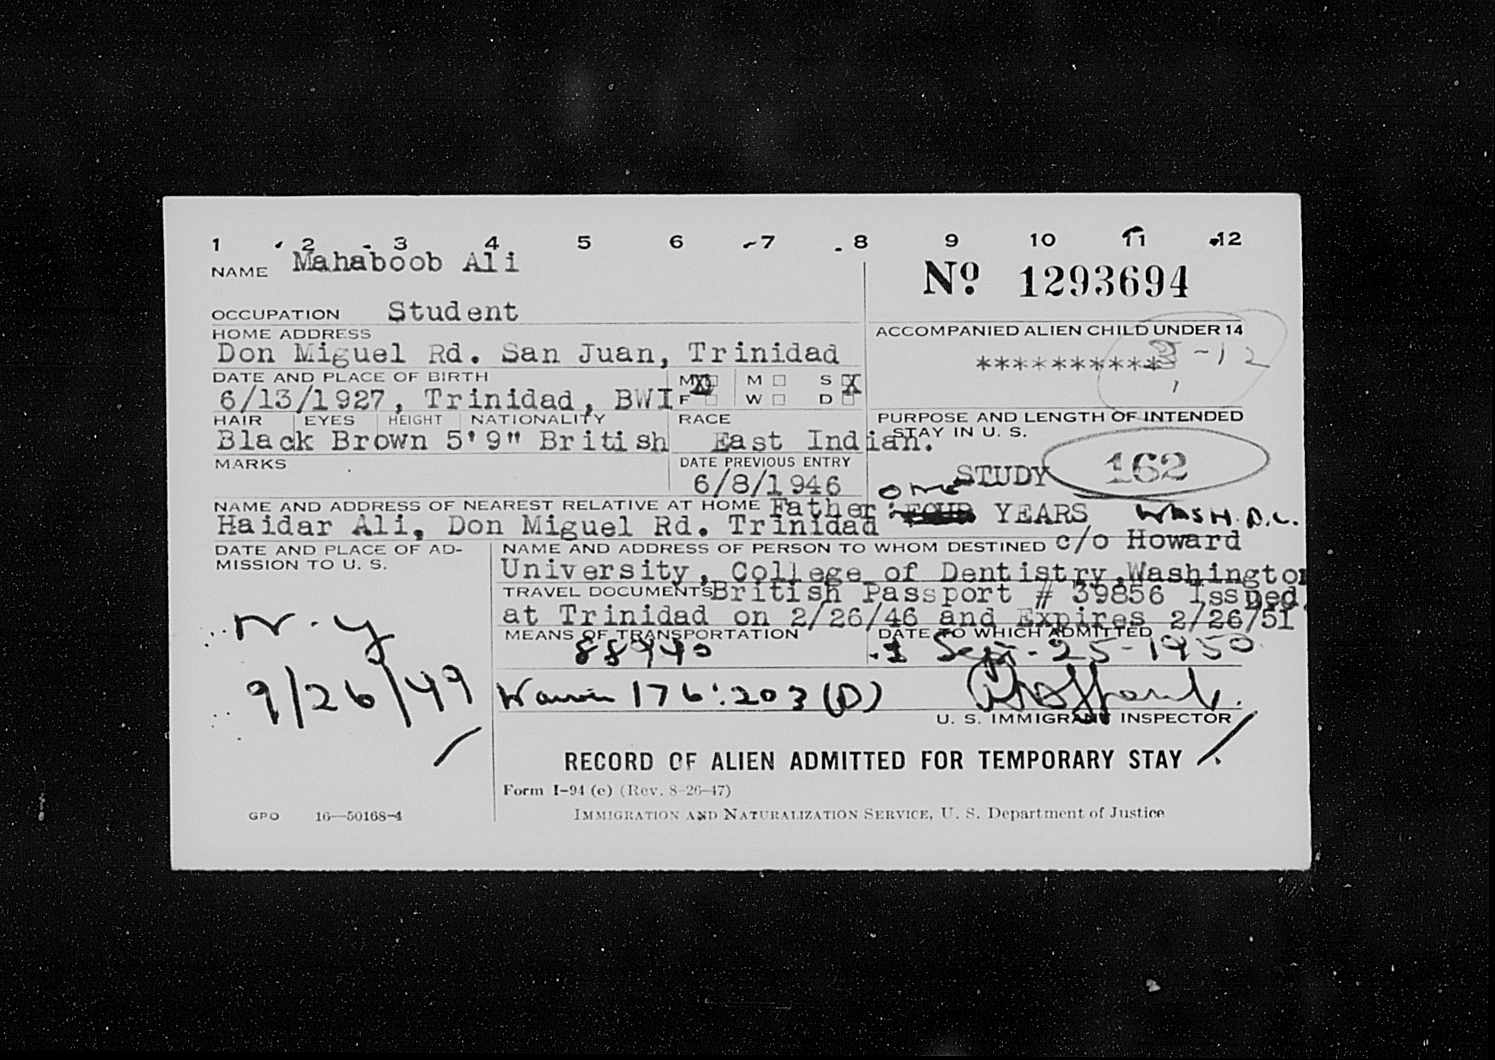 1 2 3 4 5 6 7 8 9 10 11 12
NAME Mahaboob Ali
Nº 1293694
OCCUPATION Student
HOME ADDRESS
Don Miguel Rd. San Juan, Trinidad
ACCOMPANIED ALIEN CHILD UNDER 14
**********
-12
DATE AND PLACE OF BIRTH
6/13/1927, Trinidad, BWI
M X M S X
F W D
HAIR EYES HEIGHT NATIONALITY RACE
Black Brown 5'9" British East Indian.
PURPOSE AND LENGTH OF INTENDED
STAY IN U. S.
MARKS
DATE PREVIOUS ENTRY
6/8/1946
STUDY 162
one FOUR YEARS WASH. D.C.
NAME AND ADDRESS OF NEAREST RELATIVE AT HOME Father:
Haidar Ali, Don Miguel Rd. Trinidad
DATE AND PLACE OF AD-
MISSION TO U. S.
N.Y
9/26/49
NAME AND ADDRESS OF PERSON TO WHOM DESTINED c/o Howard
University, College of Dentistry, Washington
TRAVEL DOCUMENTS British Passport # 39856 Issued
at Trinidad on 2/26/46 and Expires 2/26/51
MEANS OF TRANSPORTATION
88940
DATE TO WHICH ADMITTED
Sept. 25-1950
176:203 (D)
U. S. IMMIGRANT INSPECTOR
RECORD OF ALIEN ADMITTED FOR TEMPORARY STAY
Form I-94 (c) (Rev. 8-26-47)
GPO 16—50168-4
IMMIGRATION AND NATURALIZATION SERVICE, U. S. Department of Justice